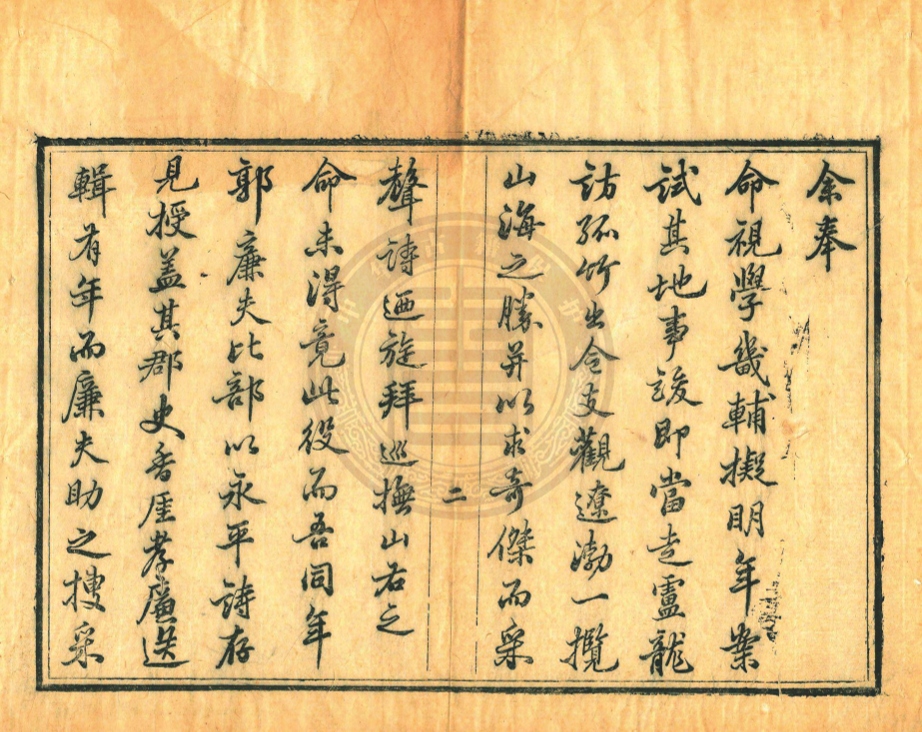 余奉
命視學畿輔擬明年案
試其地事竣即當走盧龍
訪孤竹出令支觀遼渤一攬
山海之勝并以求奇傑而采
二
聲詩迺旋拜巡撫山右之
命未得竟此役而吾同年
郭廉夫比部以永平詩存
見授蓋其郡史香厓孝廉迭
輯有年而廉夫助之搜采